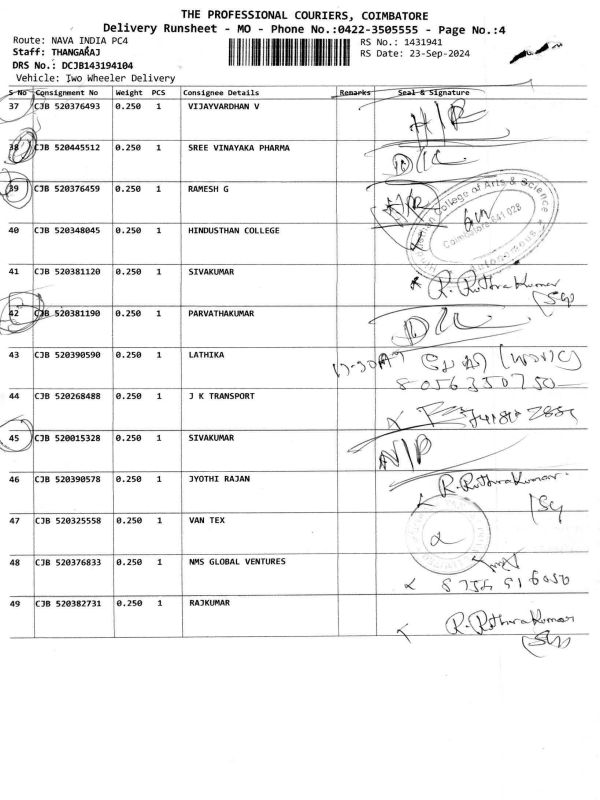 THE PROFESSIONAL COURIERS, COIMBATORE
Delivery Runsheet - MO - Phone No.:0422-3505555 - Page No.:4
Route: NAVA INDIA PC4
RS No.: 1431941
Staff: THANGARAJ
RS Date: 23-Sep-2024
DRS No.: DCJB143194104
Vehicle: Two Wheeler Delivery
S No Consignment No Weight PCS Consignee Details Remarks Seal & Signature
37 CJB 520376493 0.250 1 VIJAYVARDHAN V
38 CJB 520445512 0.250 1 SREE VINAYAKA PHARMA D/L
39 CJB 520376459 0.250 1 RAMESH G
40 CJB 520348045 0.250 1 HINDUSTHAN COLLEGE
College of Arts & Science
Coimbatore-641 028
41 CJB 520381120 0.250 1 SIVAKUMAR R. RuthraKumar
42 CJB 520381190 0.250 1 PARVATHAKUMAR D/L
43 CJB 520390590 0.250 1 LATHIKA
8056350750
44 CJB 520268488 0.250 1 J K TRANSPORT
45 CJB 520015328 0.250 1 SIVAKUMAR
46 CJB 520390578 0.250 1 JYOTHI RAJAN R. RuthraKumar
47 CJB 520325558 0.250 1 VAN TEX
48 CJB 520376833 0.250 1 NMS GLOBAL VENTURES
49 CJB 520382731 0.250 1 RAJKUMAR R. RuthraKumar